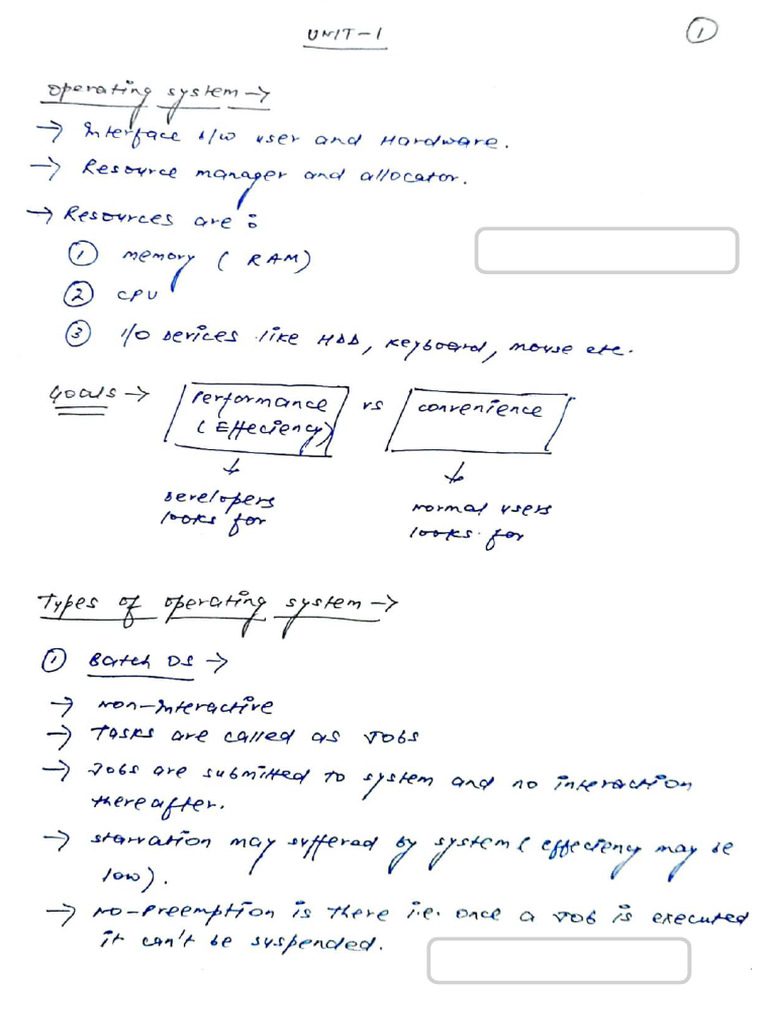 UNIT-1
1
Operating system →
→ Interface b/w user and Hardware.
→ Resource manager and allocator.
→ Resources are :
① memory ( RAM)
② CPU
③ I/O Devices like HDD, keyboard, mouse etc.
Goals → Performance (Effeciency) vs convenience
↓ developers looks for
↓ normal users looks for
Types of operating system →
① Batch OS →
→ Non-Interactive
→ Tasks are called as Jobs
→ Jobs are submitted to system and no interaction
thereafter.
→ starvation may suffered by system ( effeciency may be
low).
→ No-Preemption is there i.e. once a Job is executed
it can't be suspended.